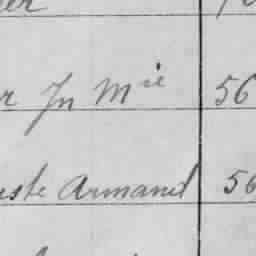 r Jn Mie 56
uste Armand 56